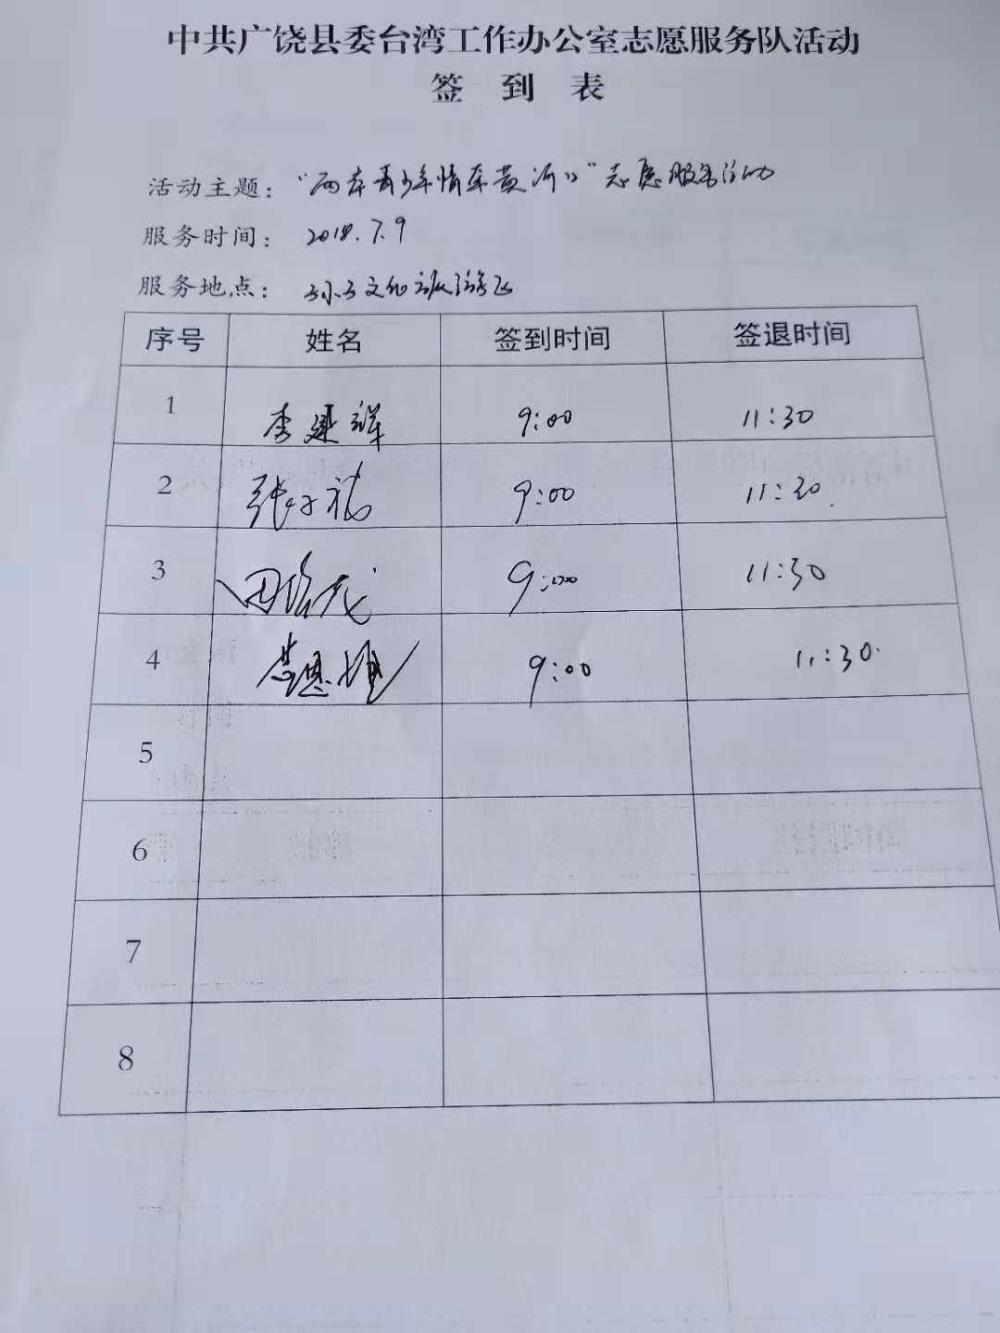 中共广饶县委台湾工作办公室志愿服务队活动
签 到 表
活动主题: "两岸青少年情系黄河口"志愿服务活动
服务时间: 2018.7.9
服务地点: 孙子文化旅游区
序号 姓名 签到时间 签退时间
1 李建祥 9:00 11:30
2 张 9:00 11:30
3 田 9:00 11:30
4 9:00 11:30
5
6
7
8